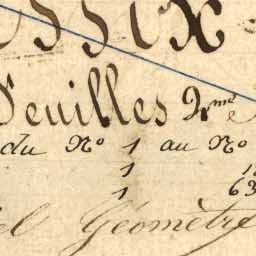 Feuilles 2me
du No 1 au No
1 1
1 63
Géomètre